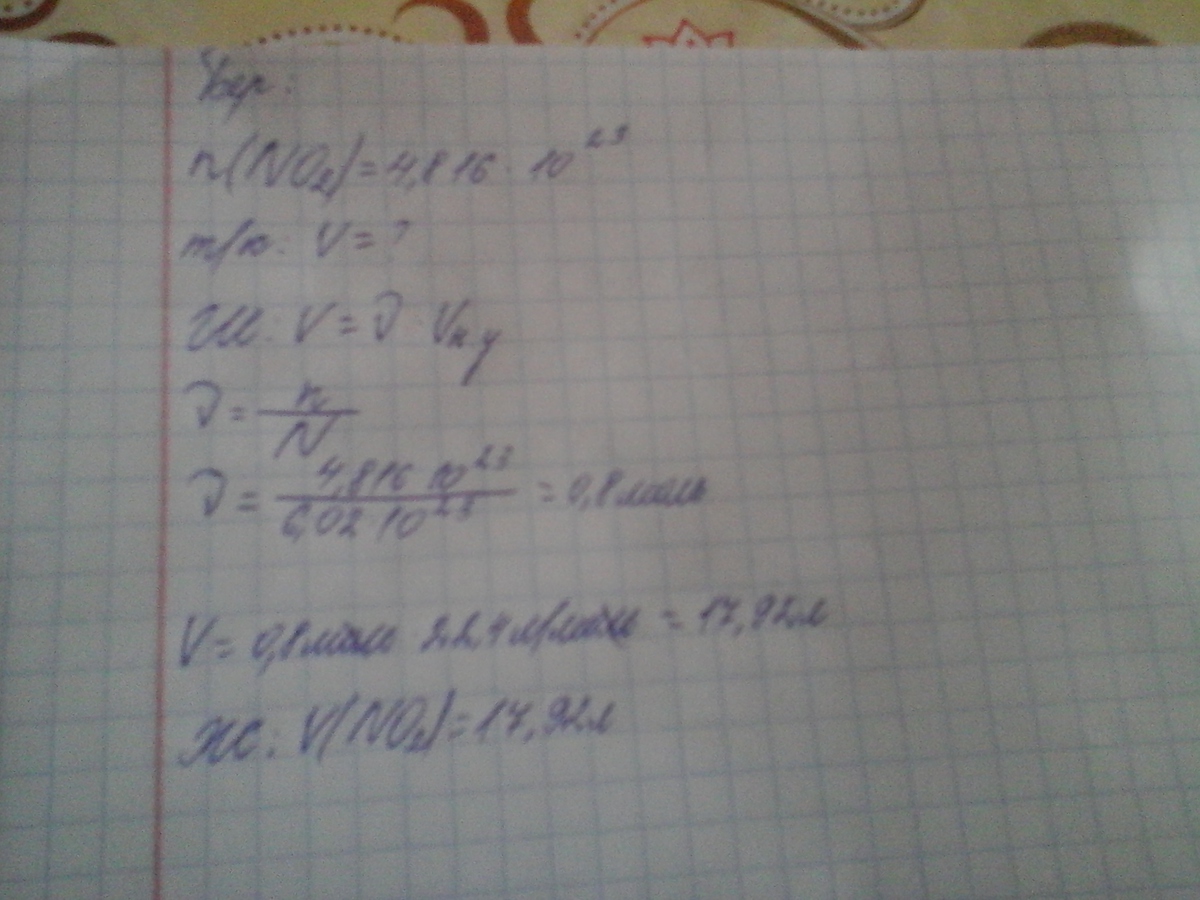 Бер:
n(NO₂)=4,816·10²³
т/к: V=?
Ш: V=ν·Vн.у
ν=n/N
ν=4,816·10²³/6,02·10²³=0,8моль
V=0,8моль·22,4л/моль=17,92л
Ж: V(NO₂)=17,92л